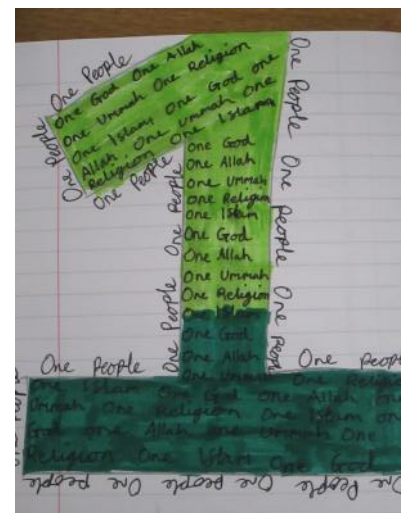 One People
One God One Allah
One Ummah One Religion
One Islam One God one
Allah One Ummah one
Religion One Islam
One People
One People
One God
One Allah
One Ummah
One Religion
One Islam
One God
One Allah
One Ummah
One Religion
One Islam
One God
One Allah
One Ummah
One People One People
One People One People One People
One People
One People
One Islam One God One Allah One
Ummah One Religion One Islam on
God one Allah one Ummah One
Religion One Islam One God
One People One People One People One People